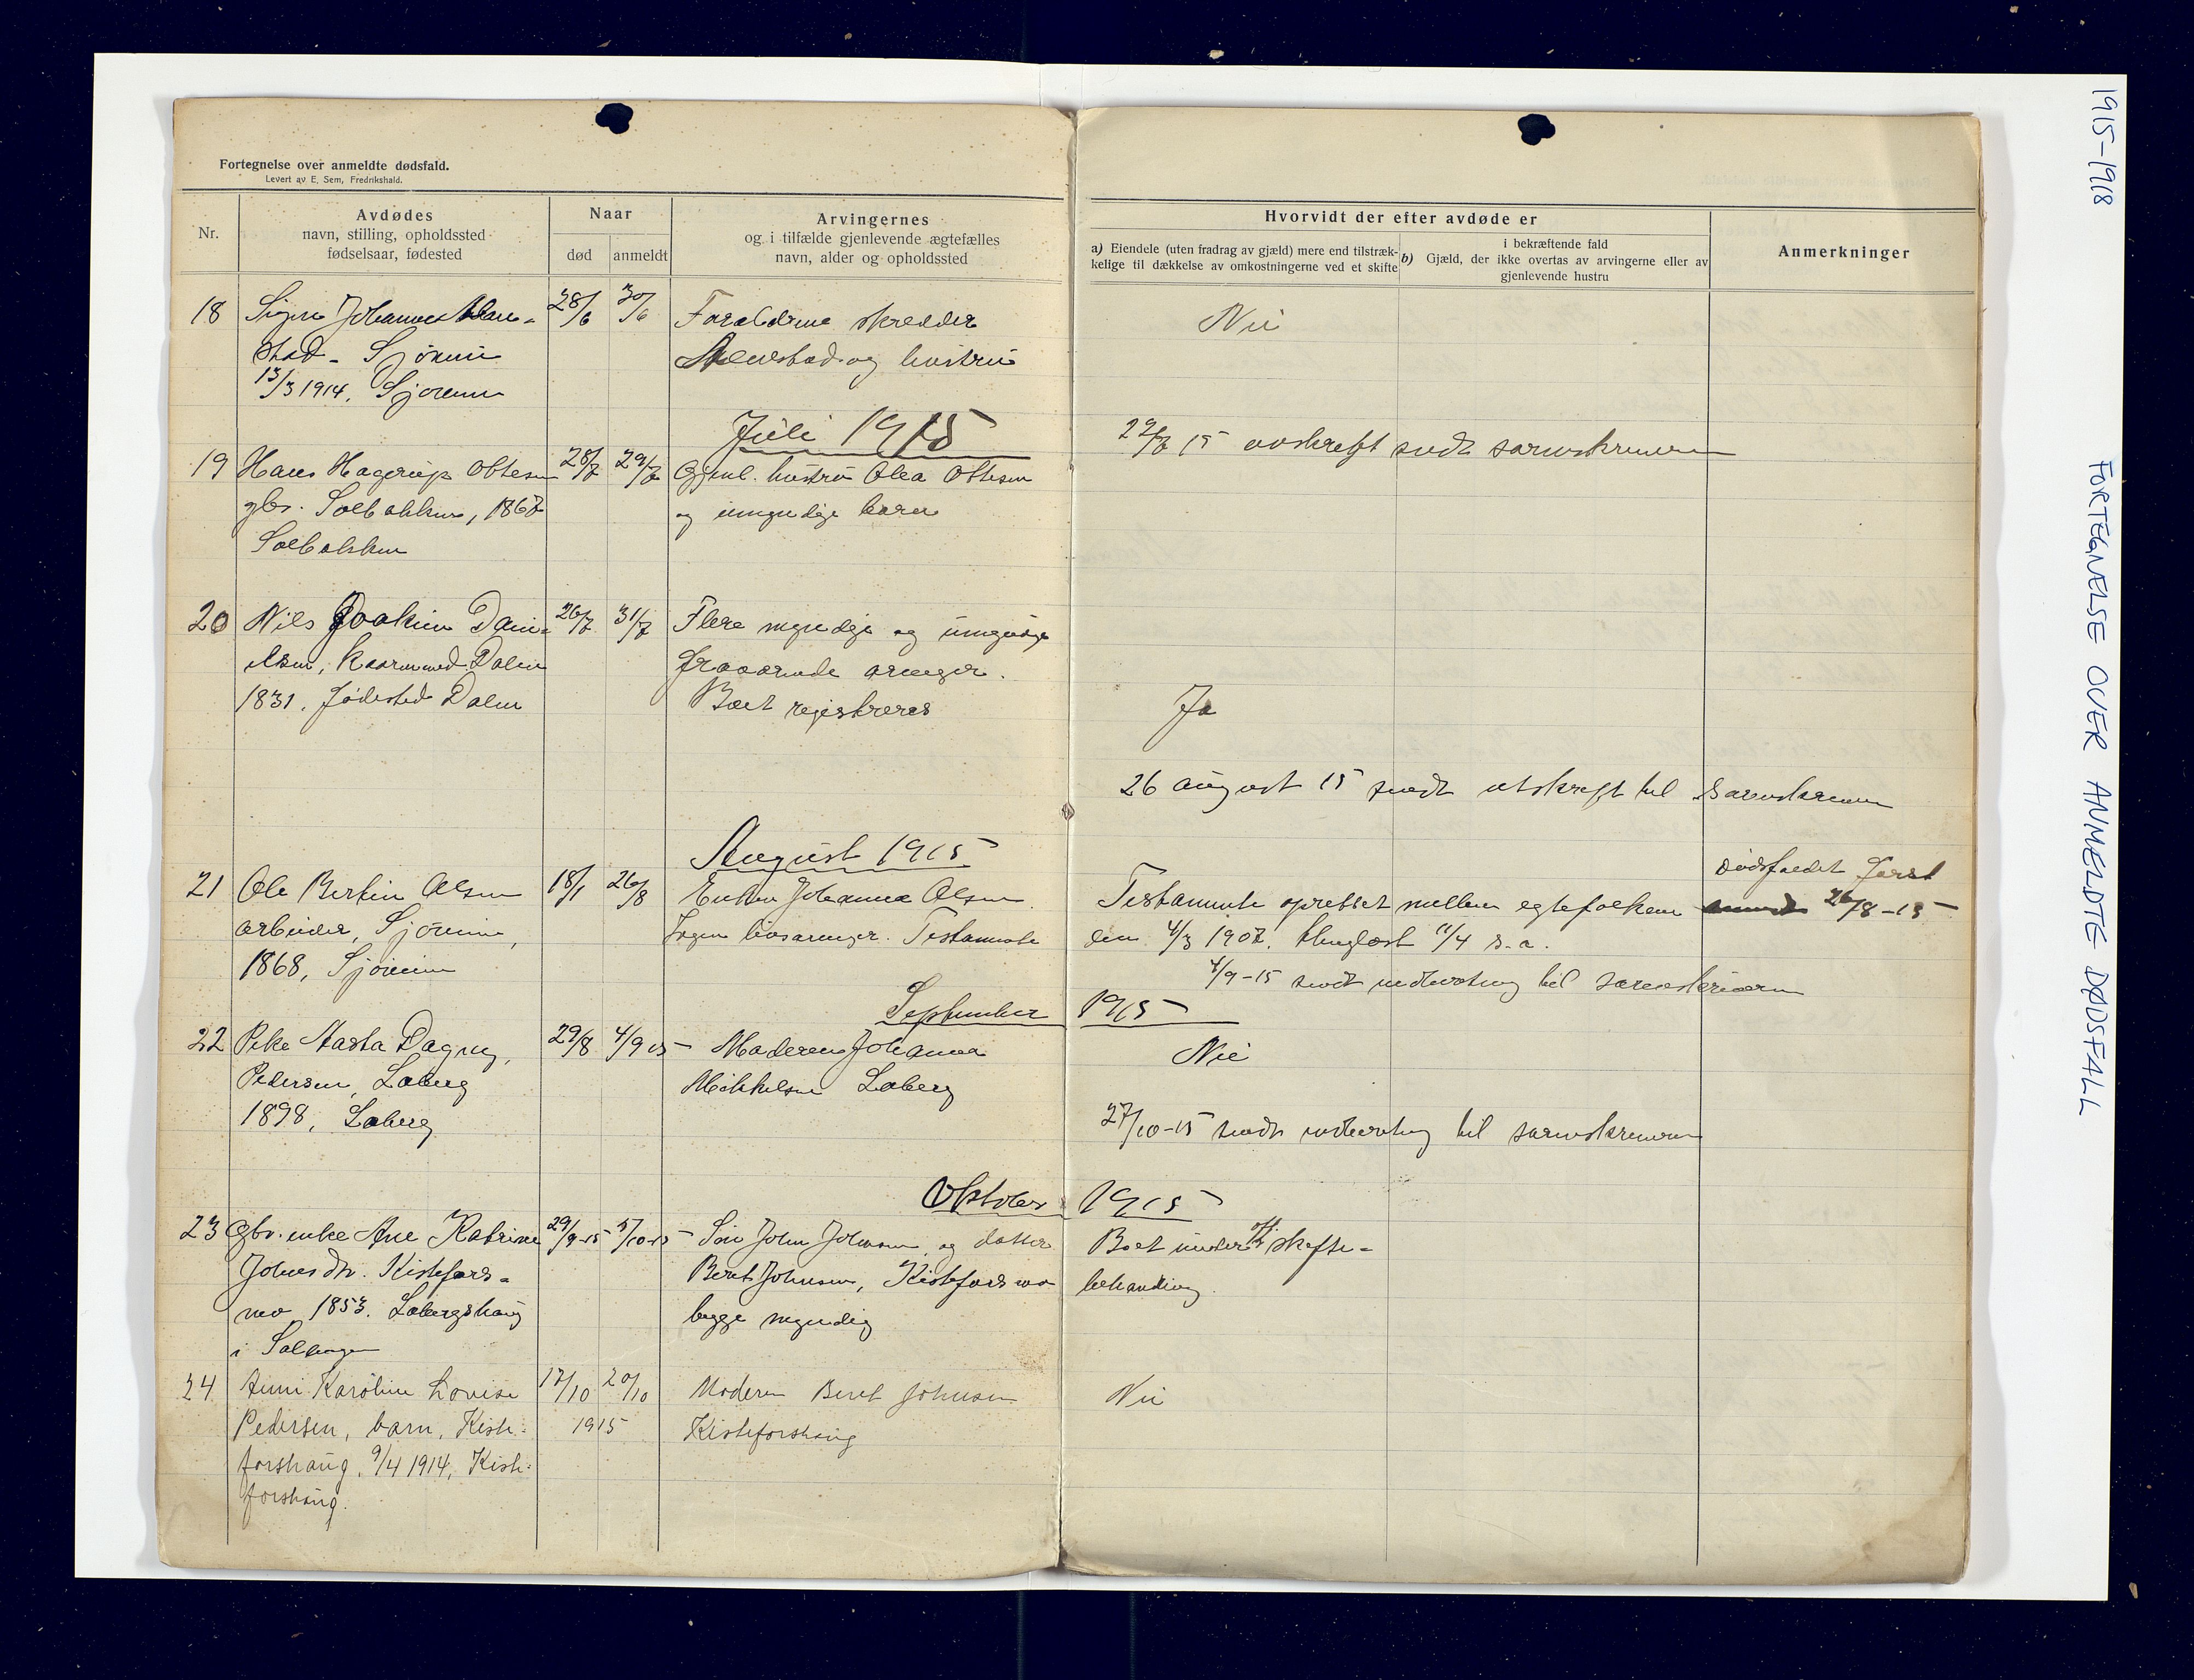 Fortegnelse over anmeldte dødsfald.
Levert av E. Sem, Fredrikshald.
Nr.
Avdødes
navn, stilling, opholdssted
fødselsaar, fødested
Naar
død
anmeldt
Arvingernes
og i tilfælde gjenlevende ægtefælles
navn, alder og opholdssted
Hvorvidt der efter avdøde er
a) Eiendele (uten fradrag av gjæld) mere end tilstræk-
kelige til dækkelse av omkostningerne ved et skifte
i bekræftende fald
b) Gjæld, der ikke overtas av arvingerne eller av
gjenlevende hustru
Anmerkninger
18
Johanne
stad - Sjøenn
13/3 1914, Sjøenn
28/6
30/6
Forældrene skrædder
og hustru
Nei
Juli 1915
29/7 15 avskrift sendt sorenskriveren
19
Hans Hagerup Ottesen
gbr. Solbakken, 1867
Solbakken
28/7
29/7
Gjenl. hustru Olea Ottesen
og umyndige barn
20
Nils Joakim Dani-
elsen, kaarmand Dalen
1831. Fødested Dalen
26/7
31/7
Flere myndige og umyndige
fraværende arvinger.
Boet registreres
Ja
26 august 15 sendt utskrift til sorenskriveren
August 1915
21
Ole Bertin Olsen
arbeider, Sjøenn,
1868, Sjøenn
18/1
26/8
Enken Johanna Olsen
Ingen livsarvinger. Testamente
Testamente oprettet mellem egtefolkene
den 4/3 1907. thinglæst 11/4 s.a.
4/9-15 sendt indberetning til sorenskriveren
Dødsfaldet først
26/8-15
September 1915
22
Pike Aasta Dagny
Pedersen, Laberg
1898, Laberg
29/8
4/9 15
Moderen Johanna
Mikkelsen Laberg
Nei
27/10-15 sendt indberetning til sorenskriveren
Oktober 1915
23
Gbr. enke Ane Katrine
Johnsdtr. Kistefors-
mo 1853. Labergshaug
i Salangen
29/9-15
5/10-15
Søn John Johnsen og datter
Beret Johnsen, Kistefors mo
begge myndig
Boet under off. skifte-
behandling.
24
Anni Karoline Lovise
Pedersen, barn, Kiste-
forshaug, 9/4 1914, Kiste-
forshaug.
17/10
20/10
1915
Moderen Beret Johnsen
Kisteforshaug
Nei
1915-1918
FORTEGNELSE OVER ANMELDTE DØDSFALL